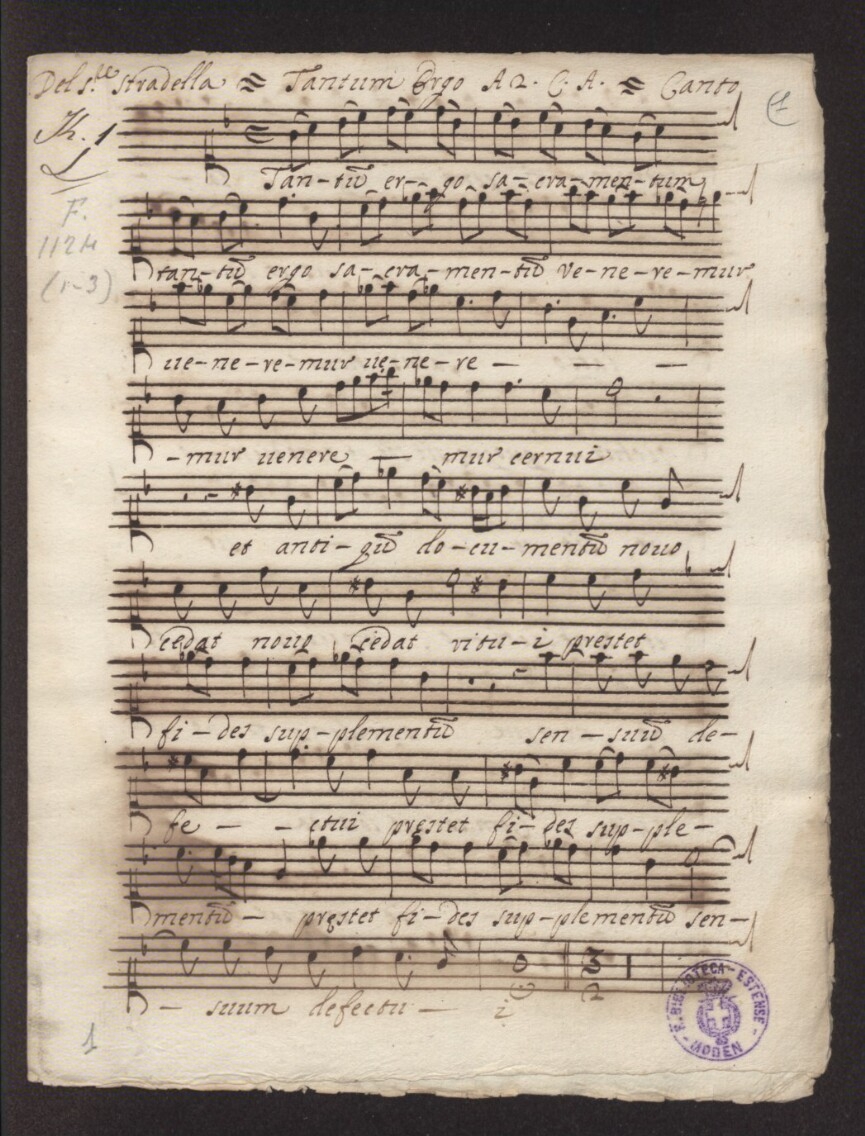 Del S.re Stradella Tantum Ergo A 2. C. A. Canto
(1
1
F.
1124
(1-3)
Tan-tũ er--go sa-cra-men-tum
tan-tũ ergo sa-cra-men-tũ ve-ne-re-mur
ue-ne-re-mur ue-ne-re - - - -
-mur uenere - mur cernui
et anti-quũ do-cu-mentũ nouo
cedat nouo cedat vitu-i prestet
fi-des sup-plementũ sen-suũ de-
fe - - ctui prestet fi-des sup-ple-
mentũ - prestet fi-des sup-plementũ sen-
- suum defectu - i
3
2
R. BIBLIOTECA-ESTENSE
MODEN
1